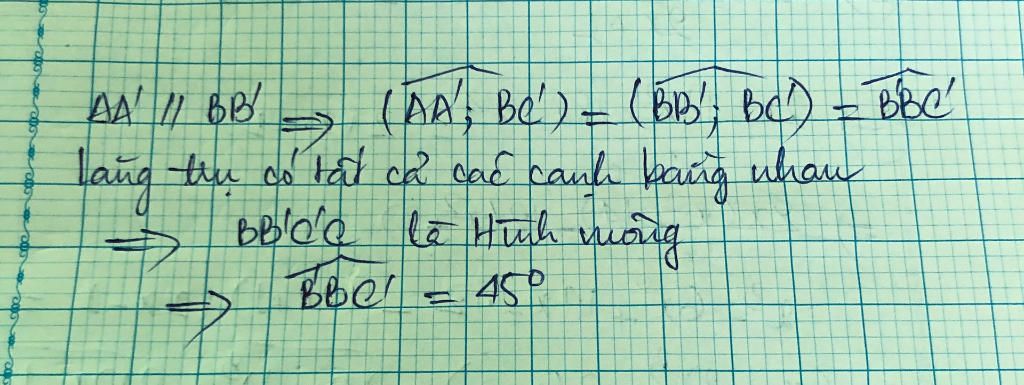 AA' // BB' ⟹ (AA'; BC') = (BB'; BC') = B'BC'
lăng trụ có tất cả các cạnh bằng nhau
⟹ BB'C'C là Hình vuông
⟹ B'BC' = 45°